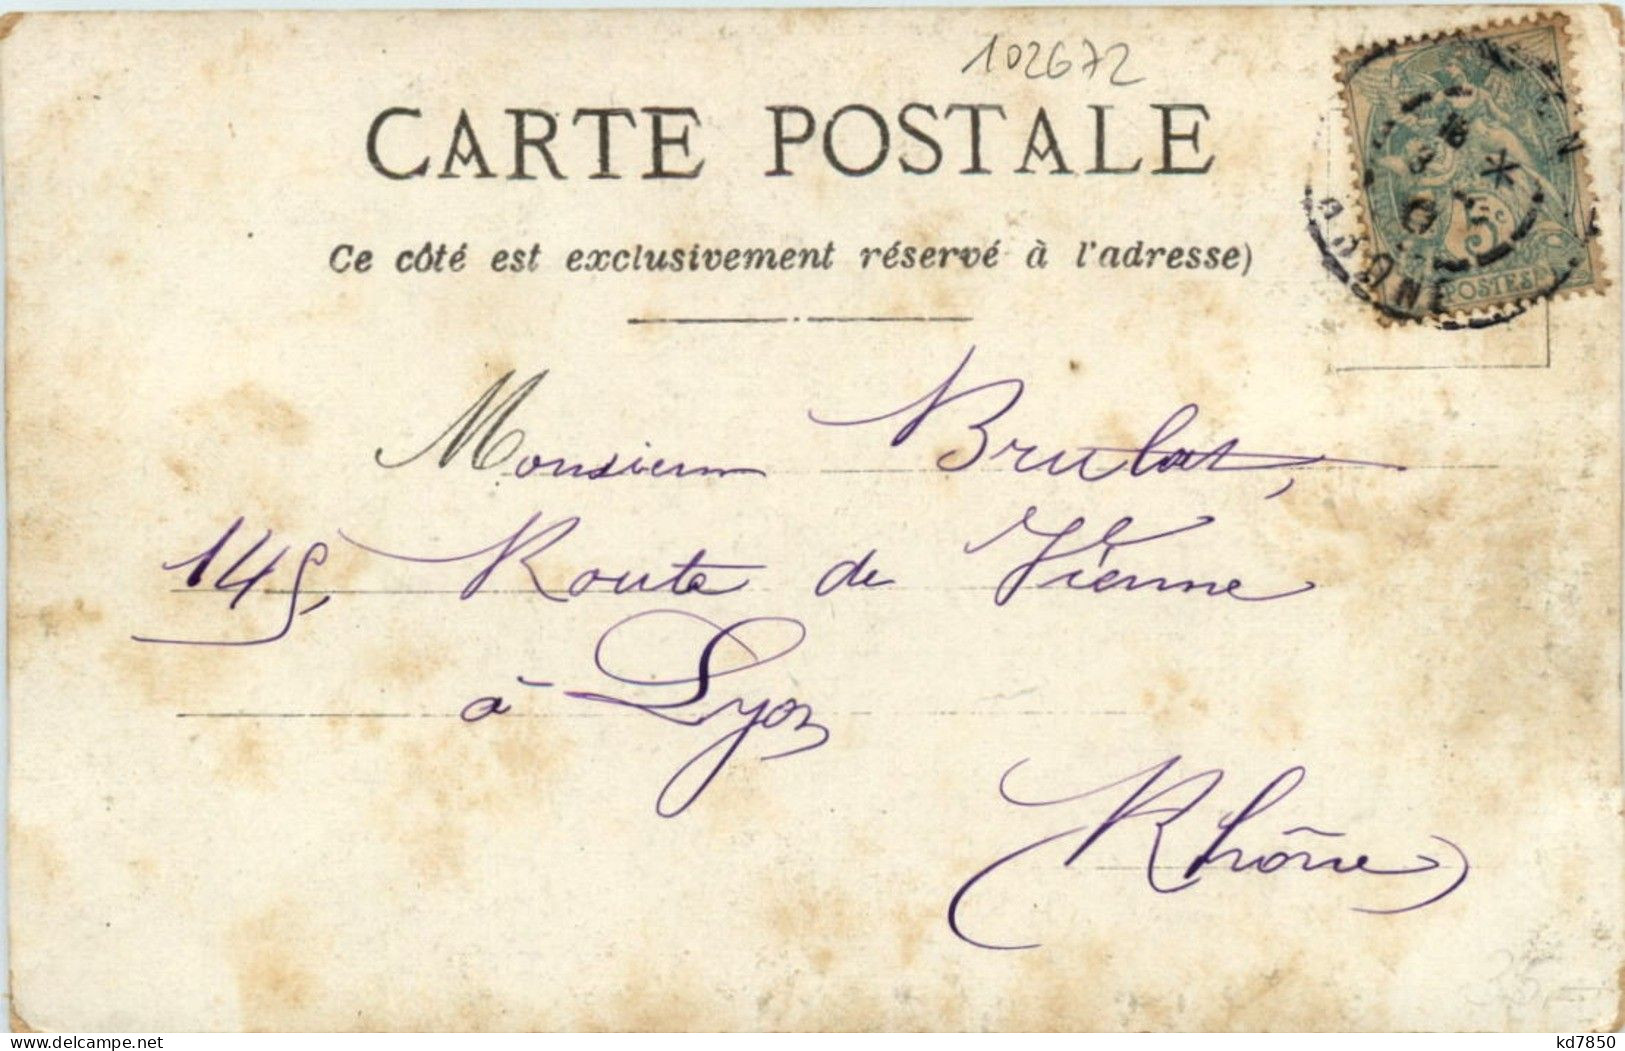 102672
CARTE POSTALE
Ce côté est exclusivement réservé à l'adresse)
5c
POSTES
Monsieur Brulat,
145, Route de Vienne
à Lyon
Rhône
35,-
kd7850